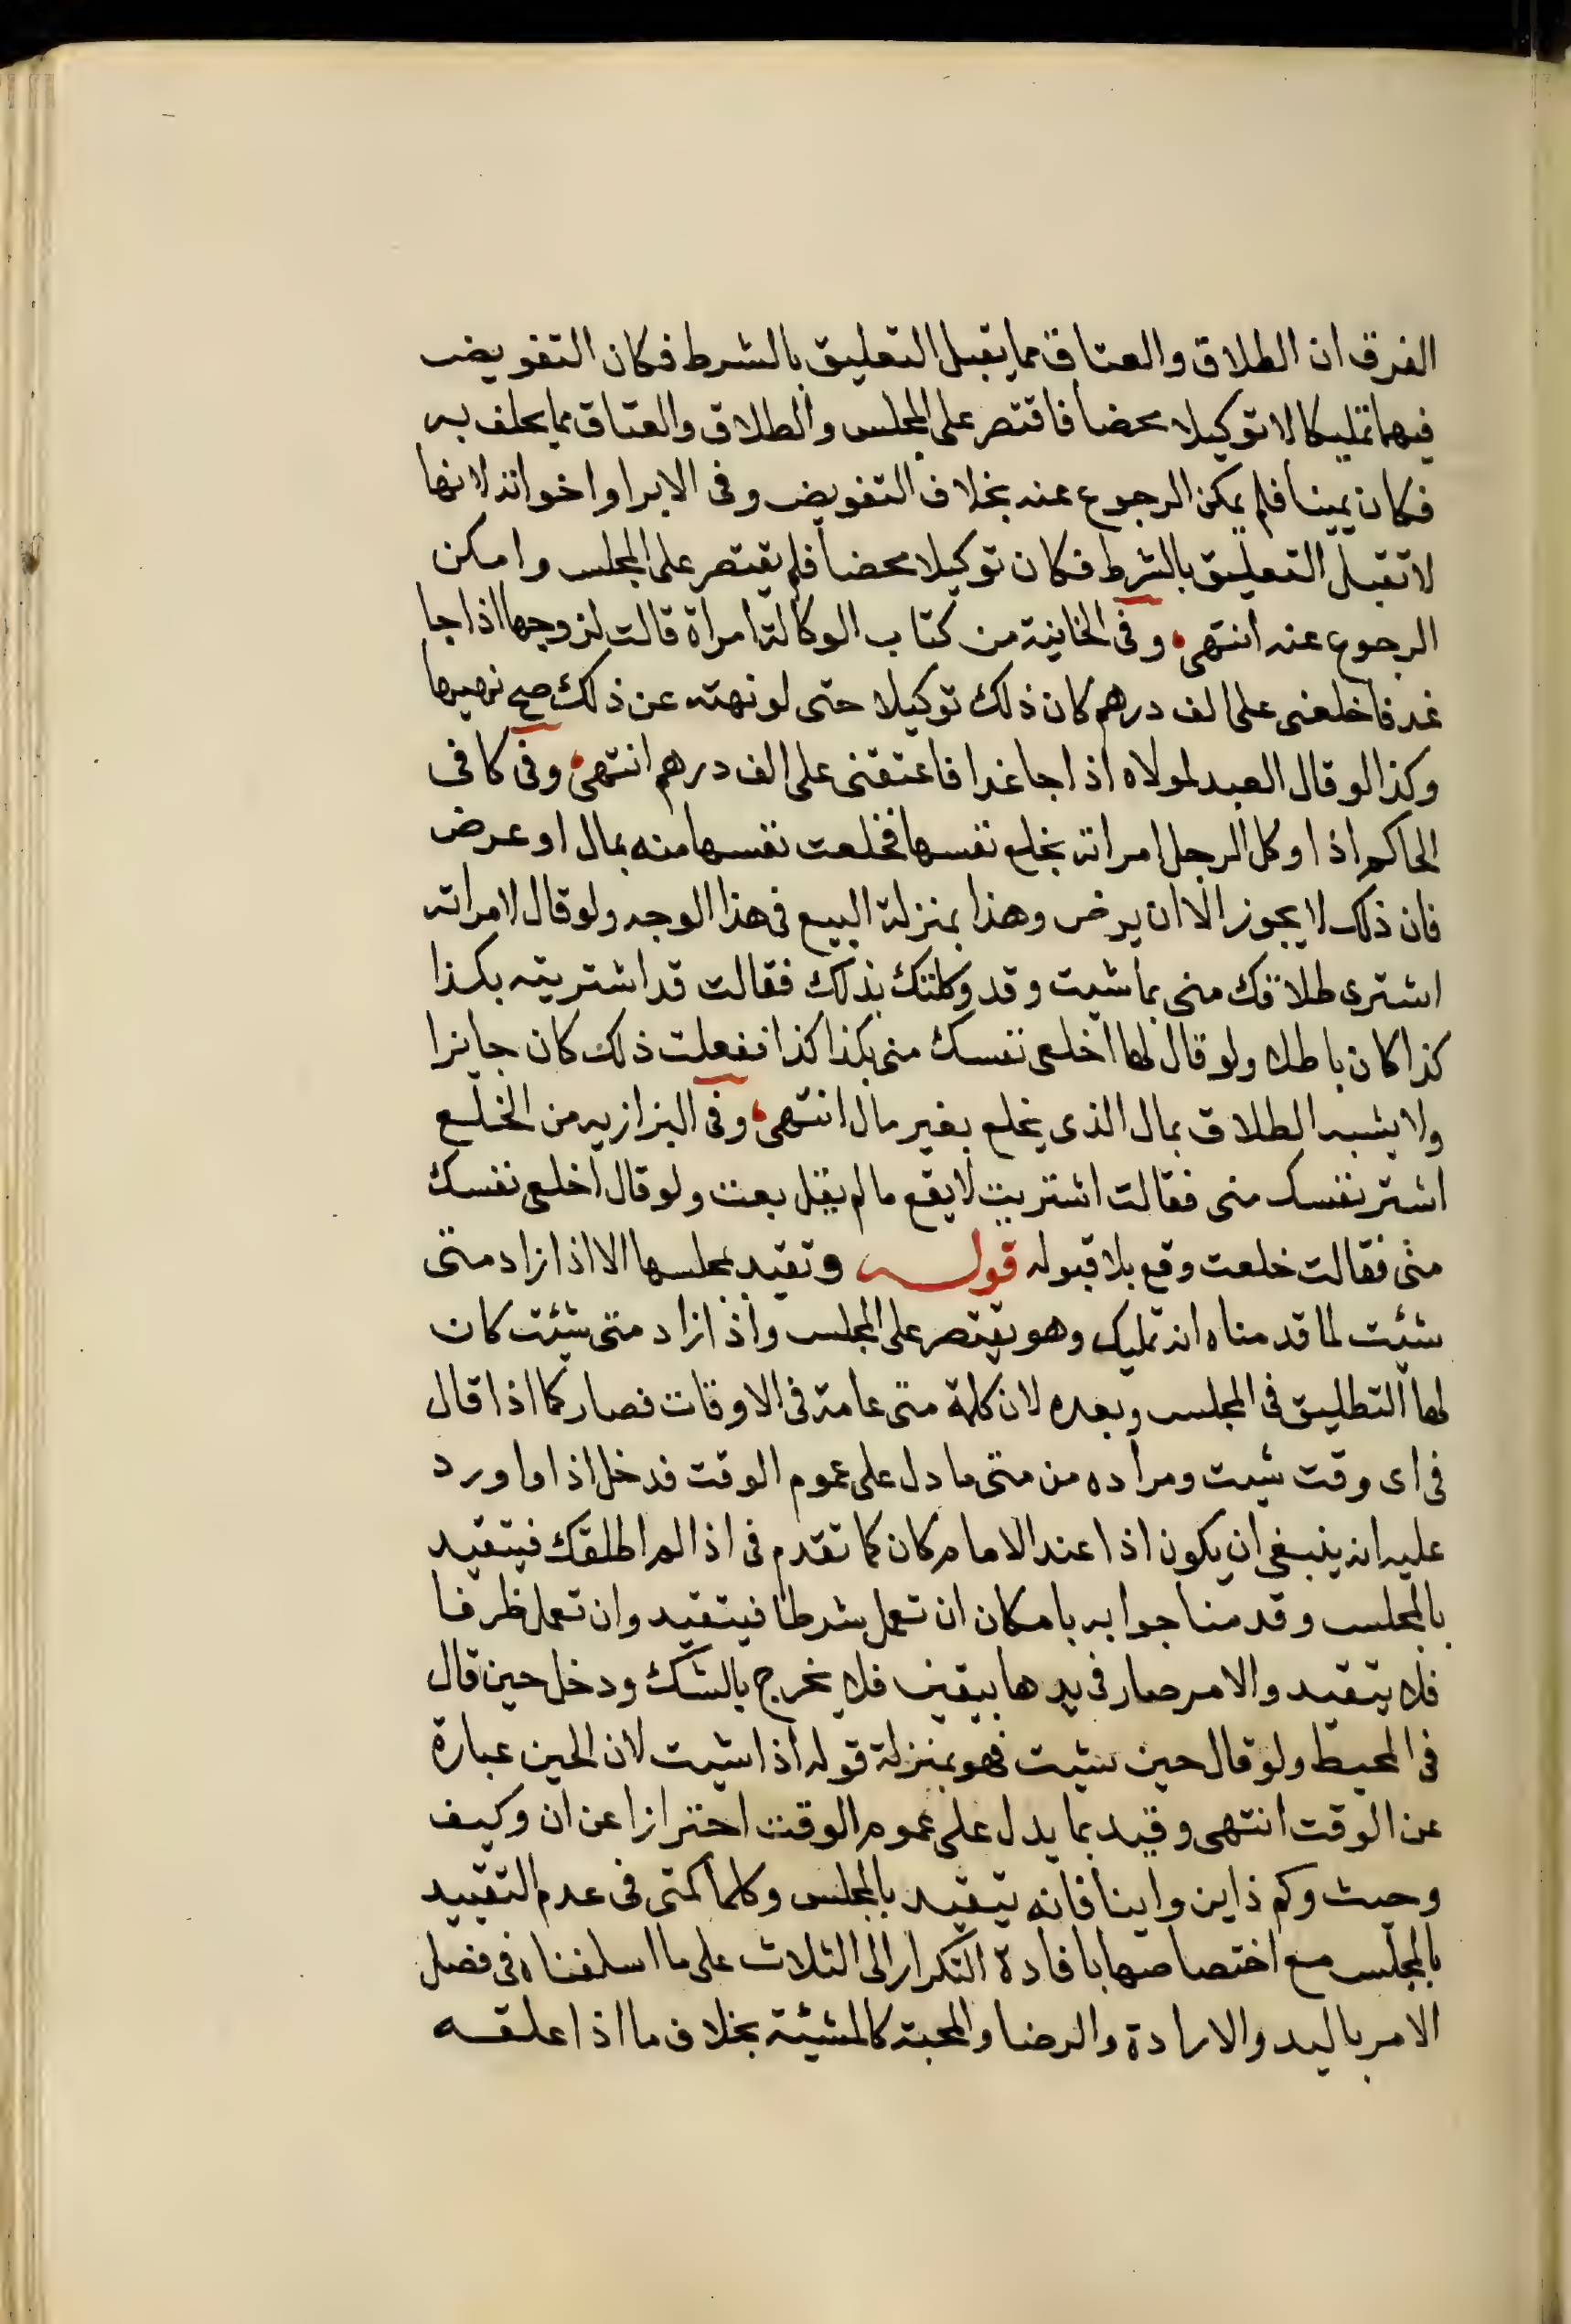 الفرق ان الطلاق والعتاق مما يقبل التعليق بالشرط فكان التفويض
فيهما تمليكا لا توكيلا محضا فاقتصر على المجلس والطلاق والعتاق مما يحلف به
فكان يمينا فلم يمكن الرجوع عنه بخلاف التفويض وفى الابرا واخواته لانها
لا تقبل التعليق بالشرط فكان توكيلا محضا فلم يقتصر على المجلس وامكن
الرجوع عنه انتهى وفى الخانية من كتاب الوكالة امراة قالت لزوجها اذا جا
غد فاخلعنى على الف درهم كان ذلك توكيلا حتى لو نهته عن ذلك صح نهيها
وكذا لو قال العبد لمولاه اذا جا غدا فاعتقنى على الف درهم انتهى وفى كافى
الحاكم اذا وكل الرجل امراته بخلع نفسها فخلعت نفسها منه بمال او عرض
فان ذلك لا يجوز الا ان يرضى وهذا بمنزلة البيع فى هذا الوجه ولو قال لامراته
اشترى طلاقك منى بما شيت وقد وكلتك بذلك فقالت قد اشتريته بكذا
كذا كان باطلا ولو قال لها اخلعى نفسك منى بكذا كذا ففعلت ذلك كان جايزا
ولا يشبه الطلاق بمال الذى يخلع بغير مال انتهى وفى البزازيه من الخلع
اشتر نفسك منى فقالت اشتريت لا يقع ما لم يقل بعت ولو قال اخلعى نفسك
منى فقالت خلعت وقع بلا قبوله قوله وتقيد بمجلسها الا اذا زاد متى
شئت لما قدمناه انه تمليك وهو يقتصر على المجلس واذا زاد متى شئت كان
لها التطليق فى المجلس وبعده لان كلمة متى عامة فى الاوقات فصار كما اذا قال
فى اى وقت شيت ومراده من متى ما دل على عموم الوقت فدخل اذا واورد
عليه انه ينبغى ان يكون اذا عند الامام كان كما تقدم فى اذا لم اطلقك فيتقيد
بالمجلس وقدمنا جوابه بامكان ان تعمل شرطا فيتقيد وان تعمل ظرفا
فلا يتقيد والامر صار فى يدها بيقين فلا يخرج بالشك ودخل حين قال
فى المحيط ولو قال حين شيت فهو بمنزلة قوله اذا شيت لان الحين عبارة
عن الوقت انتهى وقيد بما يدل على عموم الوقت احترازا عن ان وكيف
وحيث وكم ذاين واينا فانه يتقيد بالمجلس وكلما كمتى فى عدم التقييد
بالمجلس مع اختصاصها بافادة التكرار الى الثلاث على ما اسلفناه فى فصل
الامر باليد والارادة والرضا والمحبة كالمشيئة بخلاف ما اذا علقه